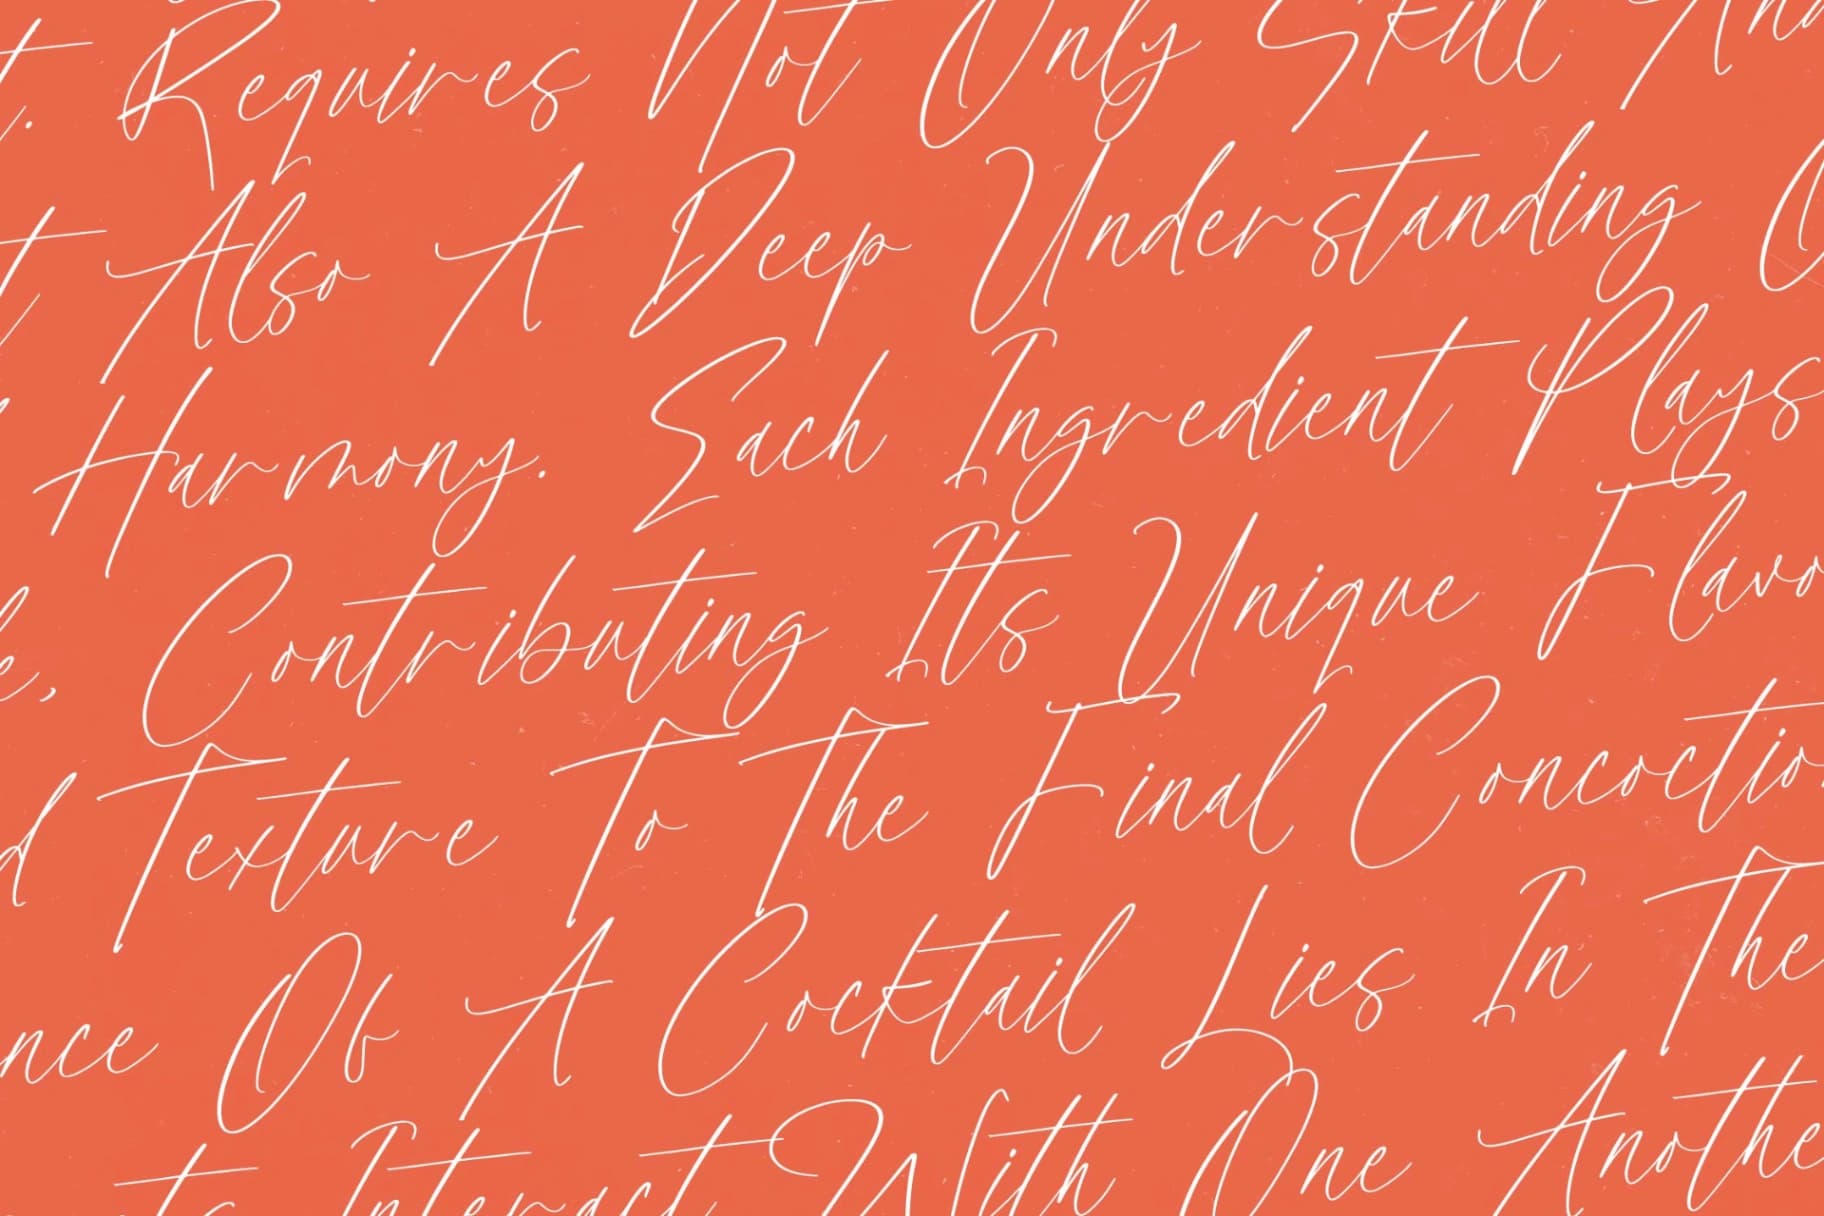 t. Requires Not Only Skill And
t Also A Deep Understanding O
Harmony. Each Ingredient Plays
e, Contributing Its Unique Flavo
d Texture To The Final Concoctio
nce Of A Cocktail Lies In The
ts Interact With One Anothe